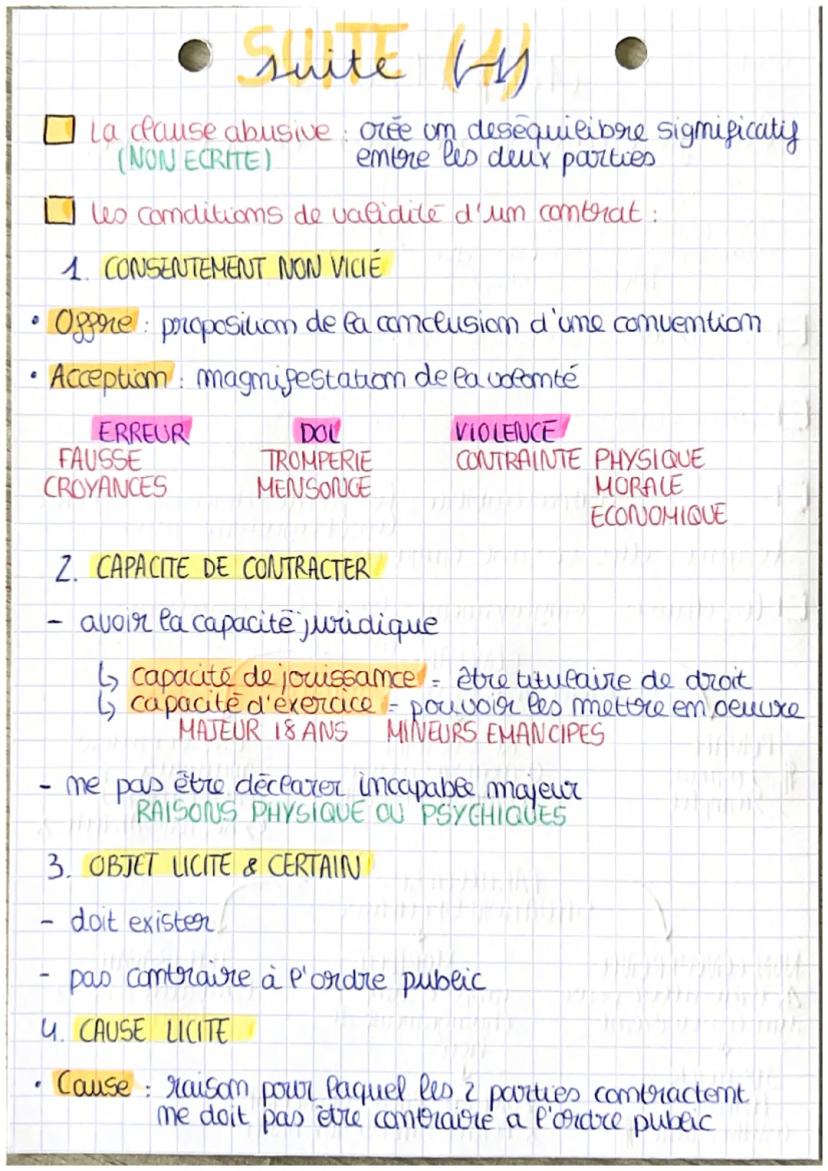 SUITE (4)
suite (4)
La clause abusive : crée un deséquilibre significatif
(NON ECRITE) entre les deux parties
Les conditions de validité d'un contrat :
1. CONSENTEMENT NON VICIÉ
• Offre : proposition de la conclusion d'une convention
• Acception : magnifestation de la volonté
ERREUR DOL VIOLENCE
FAUSSE TROMPERIE CONTRAINTE PHYSIQUE
CROYANCES MENSONGE MORALE
ECONOMIQUE
2. CAPACITE DE CONTRACTER
- avoir la capacité juridique
↳ capacité de jouissance = être titulaire de droit
↳ capacité d'exercice = pouvoir les mettre en oeuvre
MAJEUR 18 ANS MINEURS EMANCIPES
- ne pas être déclarer incapable majeur
RAISONS PHYSIQUE OU PSYCHIQUES
3. OBJET LICITE & CERTAIN
- doit exister
- pas contraire à l'ordre public
4. CAUSE LICITE
• Cause : raison pour laquel les 2 parties contractent
ne doit pas être contraire a l'ordre public